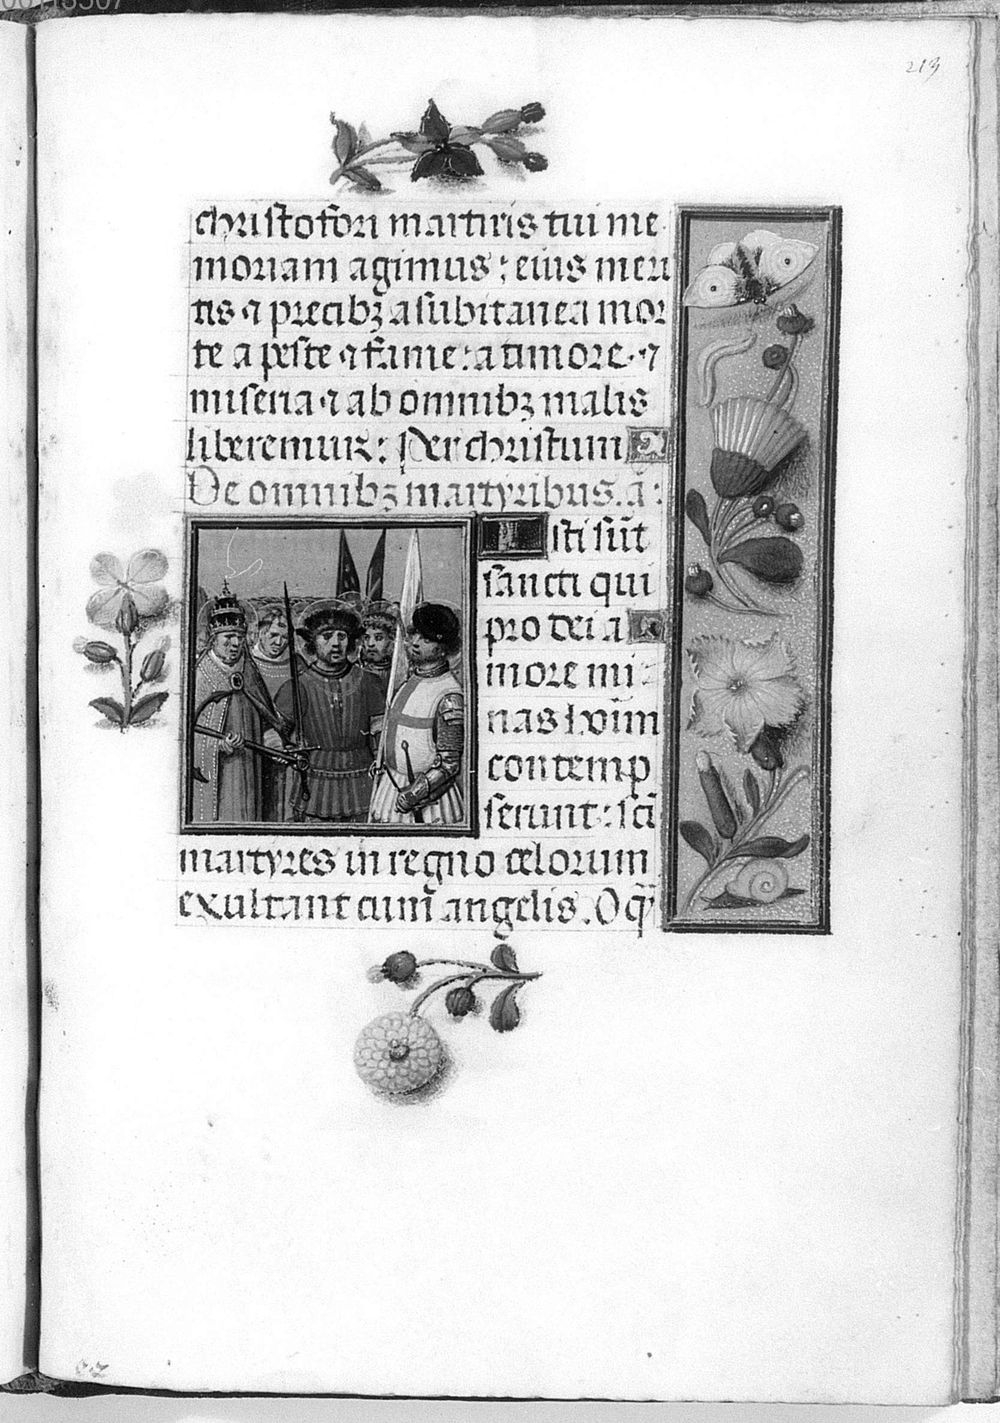 00118507
213
christofori martiris tui me
moriam agimus : eius meri
tis ⁊ precibꝫ a subitanea mor
te a peste ⁊ fame : a timore · ⁊
miseria ⁊ ab omnibꝫ malis
liberemur : Per christum
De omnibꝫ martyribus . a̅ :
Isti su̅t
sancti qui
pro dei a
more mi
nas ho̅im
contemp
serunt : sc̅i
martyres in regno celorum
exultant cum̅ angelis . O q̅